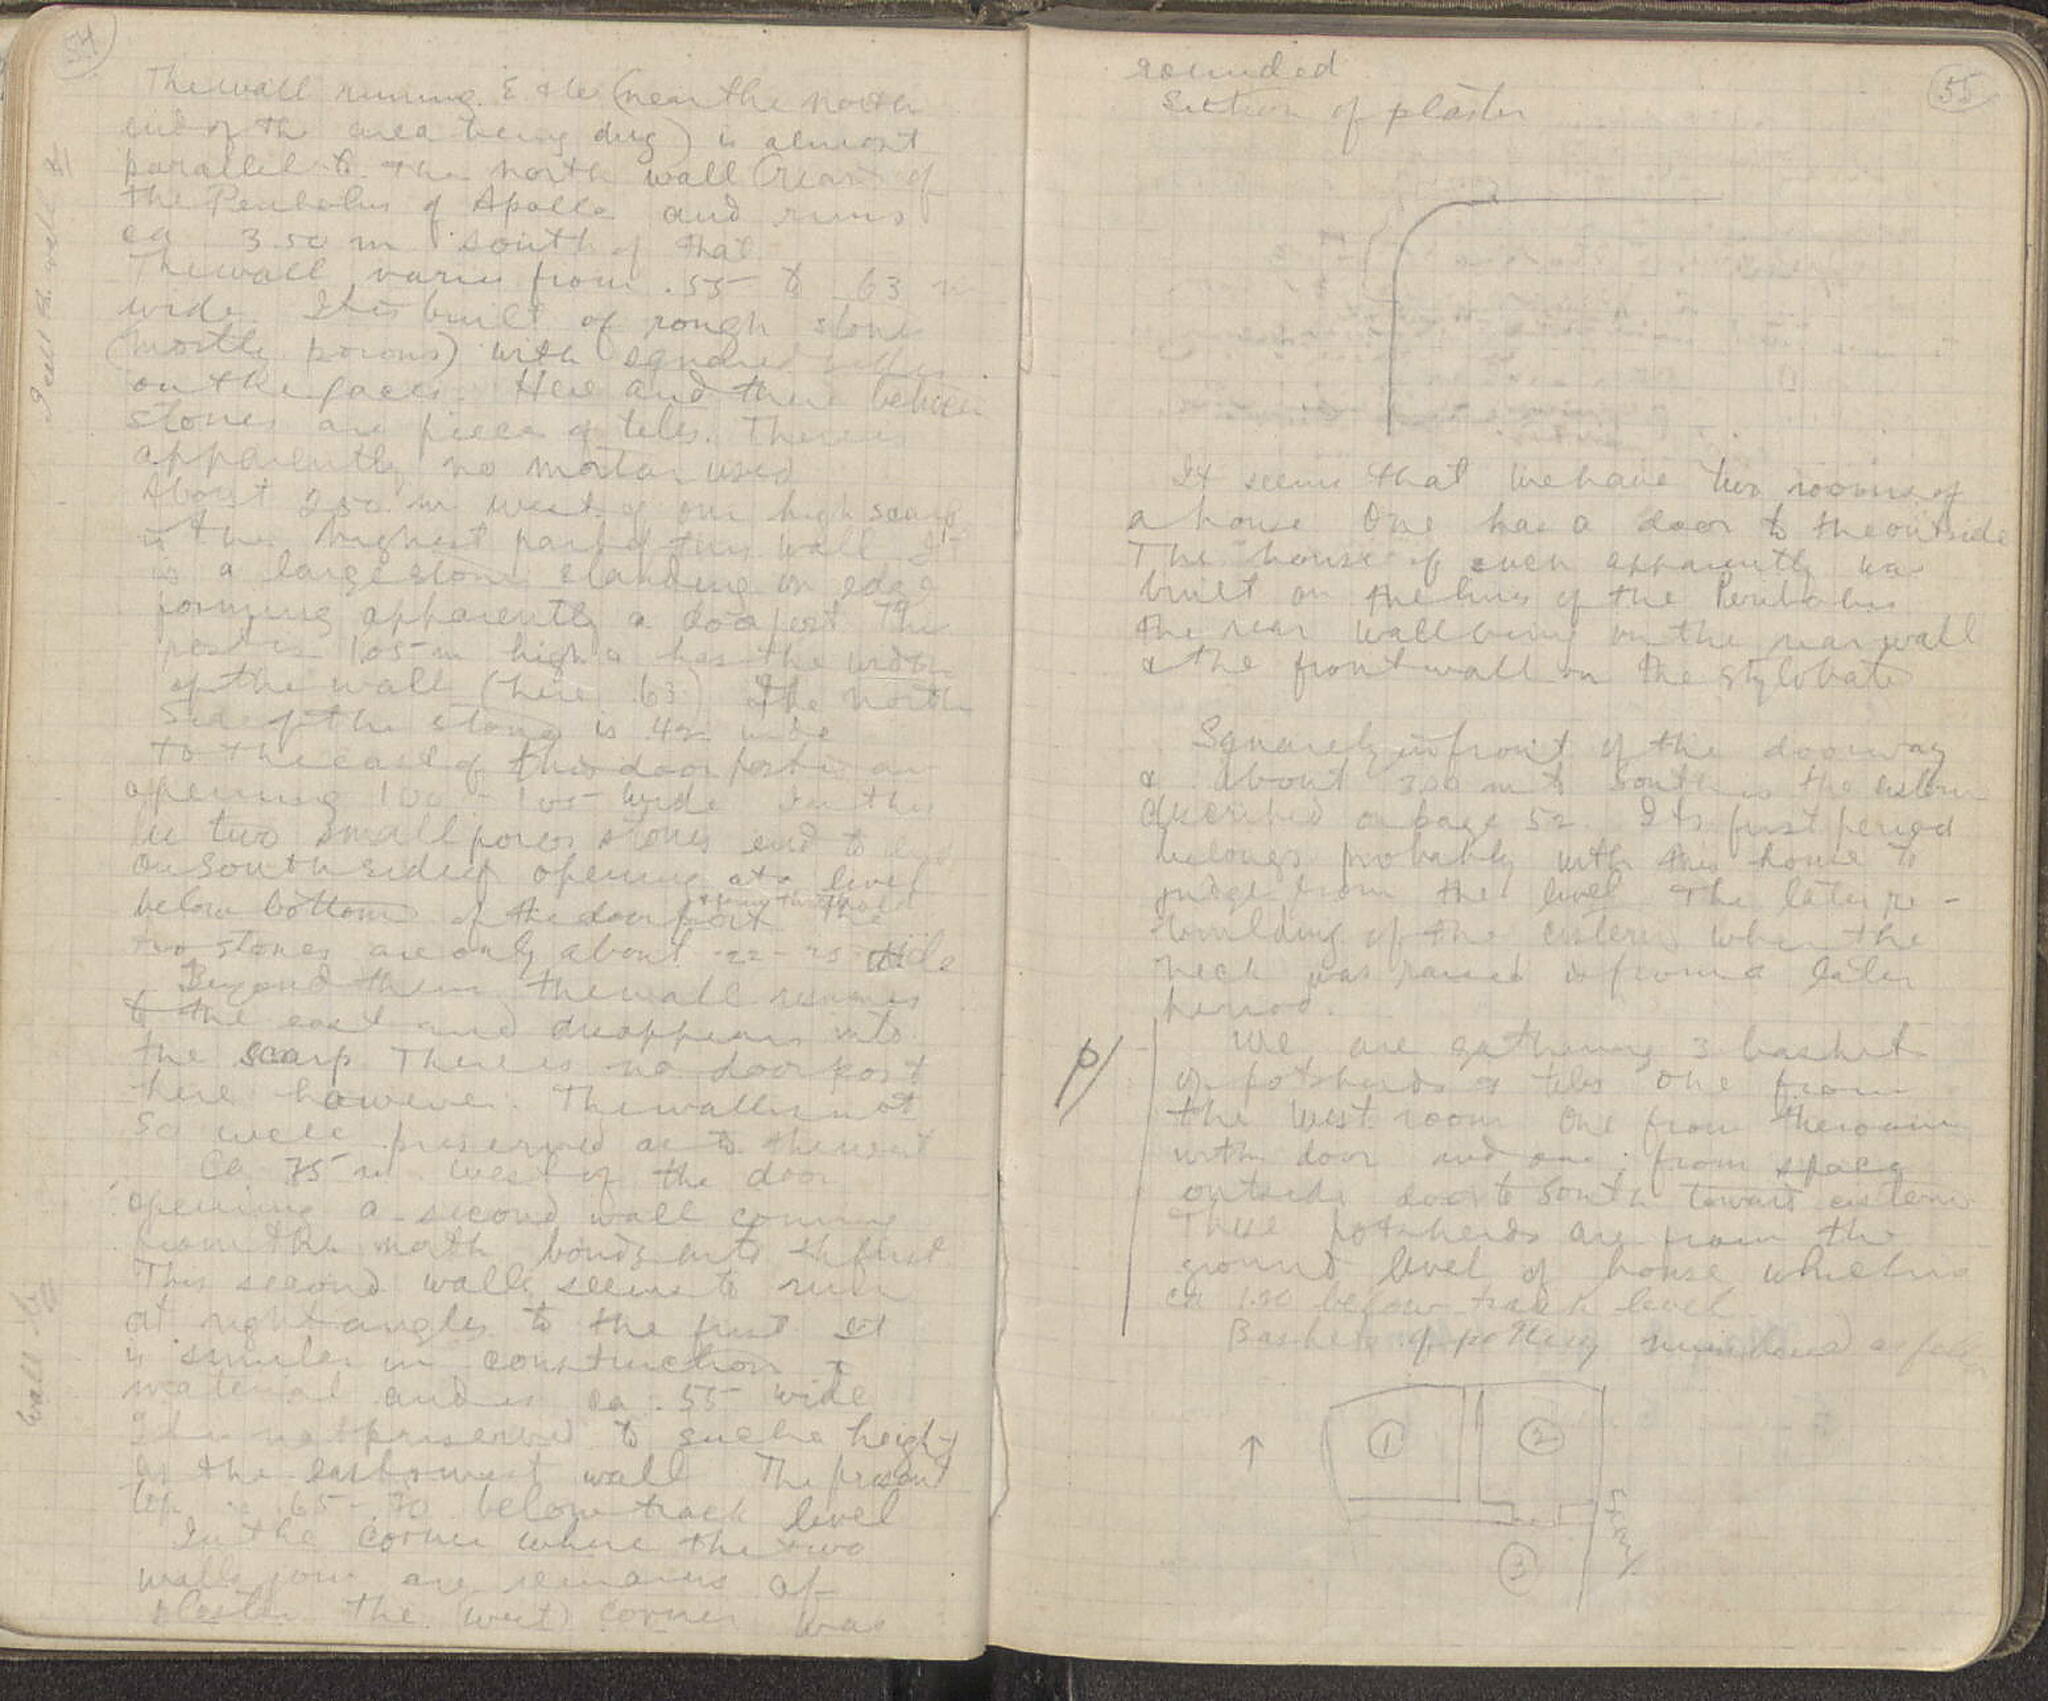 54
The wall running E & W (near the north
end of the area being dug) is almost
parallel to the north wall (rear of
the Peribolus of Apollo and runs
ca 3.50 m south of that.
The wall varies from .55 to .63 m
wide. It is built of rough stones
(mostly porous) with squared
on the faces. Here and there between
stones are pieces of tiles. There is
apparently no mortar used
About 2.50 m west of our high scarp
is the highest part of this wall It
is a large stone standing on edge
forming apparently a doorpost The
post is 1.05 m high & has the width
of the wall (here .63) The north
side of the stone is .42 wide
To the east of this door post is an
opening 1.00 - 1.05 wide In this
lie two small poros stones end to end
on south side of opening at a level
below bottom of the door post The
two stones are only about .22 - .25 wide
Beyond them the wall resumes
to the east and disappears into
the scarp There is no door post
here however. The wall is not
so well preserved as to the west
Ca .75 m west of the door
opening a second wall coming
from the north bonds into the first
This second wall seems to run
at right angles to the first It
is similar in construction &
material and is ca .55 wide
It is not preserved to such a height
as the east-west wall The present
top is .65 - .70 below track level
In the corner where the two
walls join are remains of
plaster The (west) corner was
55
rounded
Section of plaster
It seems that we have two rooms of
a house One has a door to the outside
The house if such apparently was
built on the lines of the Peribolus
the rear wall being on the rear wall
& the front wall on the stylobate
Squarely in front of the doorway
& about 3.00 m to south is the cistern
described on page 52. Its first period
belongs probably with this house to
judge from the level The later re-
building of the cistern when the
neck was raised is from a later
period.
p/
We are gathering 3 baskets
of potsherds & tiles one from
the west room One from the room
with door and one from space
outside door to south toward cistern
These potsherds are from the
ground level of house which is
ca 1.20 below track level
Baskets of pottery numbered as follows
1
2
3
Scarp